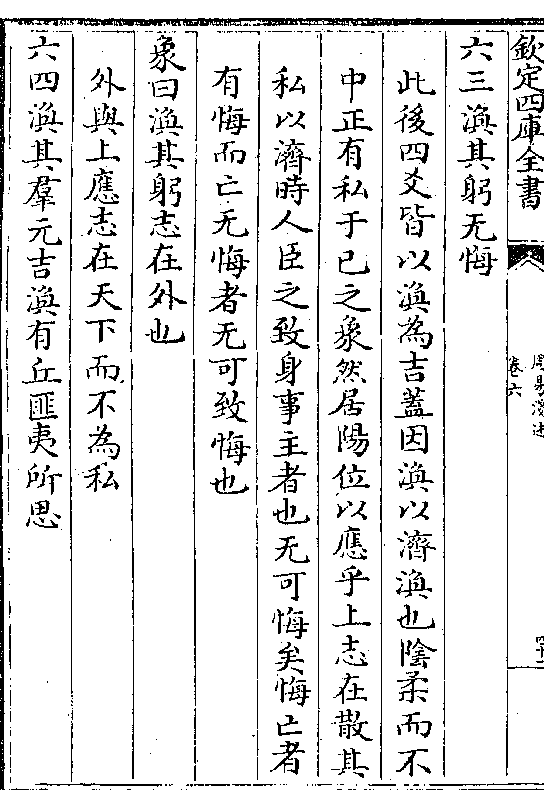 欽定四庫全書
卷六
六三渙其躬无悔
此後四爻皆以渙為吉蓋因渙以濟渙也陰柔而不
中正有私于己之象然居陽位以應乎上志在散其
私以濟時人臣之致身事主者也无可悔矣悔亡者
有悔而亡无悔者无可致悔也
象曰渙其躬志在外也
外與上應志在天下而不為私
六四渙其羣元吉渙有丘匪夷所思